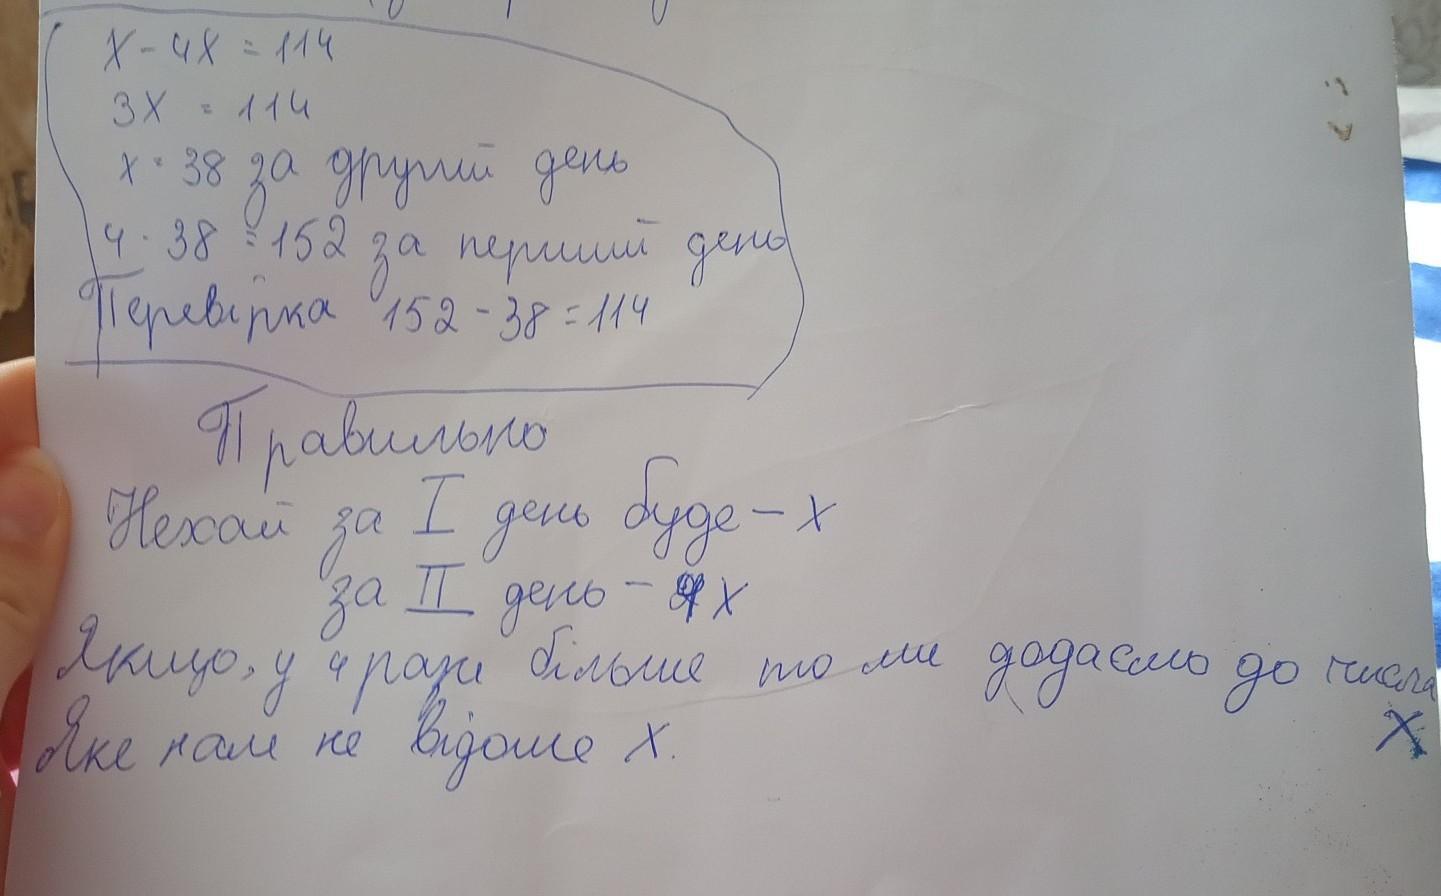 х - 4х = 114
3х = 114
х = 38 за другий день
4 · 38 = 152 за перший день
Перевірка 152 - 38 = 114
Правильно
Нехай за I день буде – х
за II день – 4х
Якщо, у 4 рази більше то ми додаємо до числа х
Яке нам не відоме х.